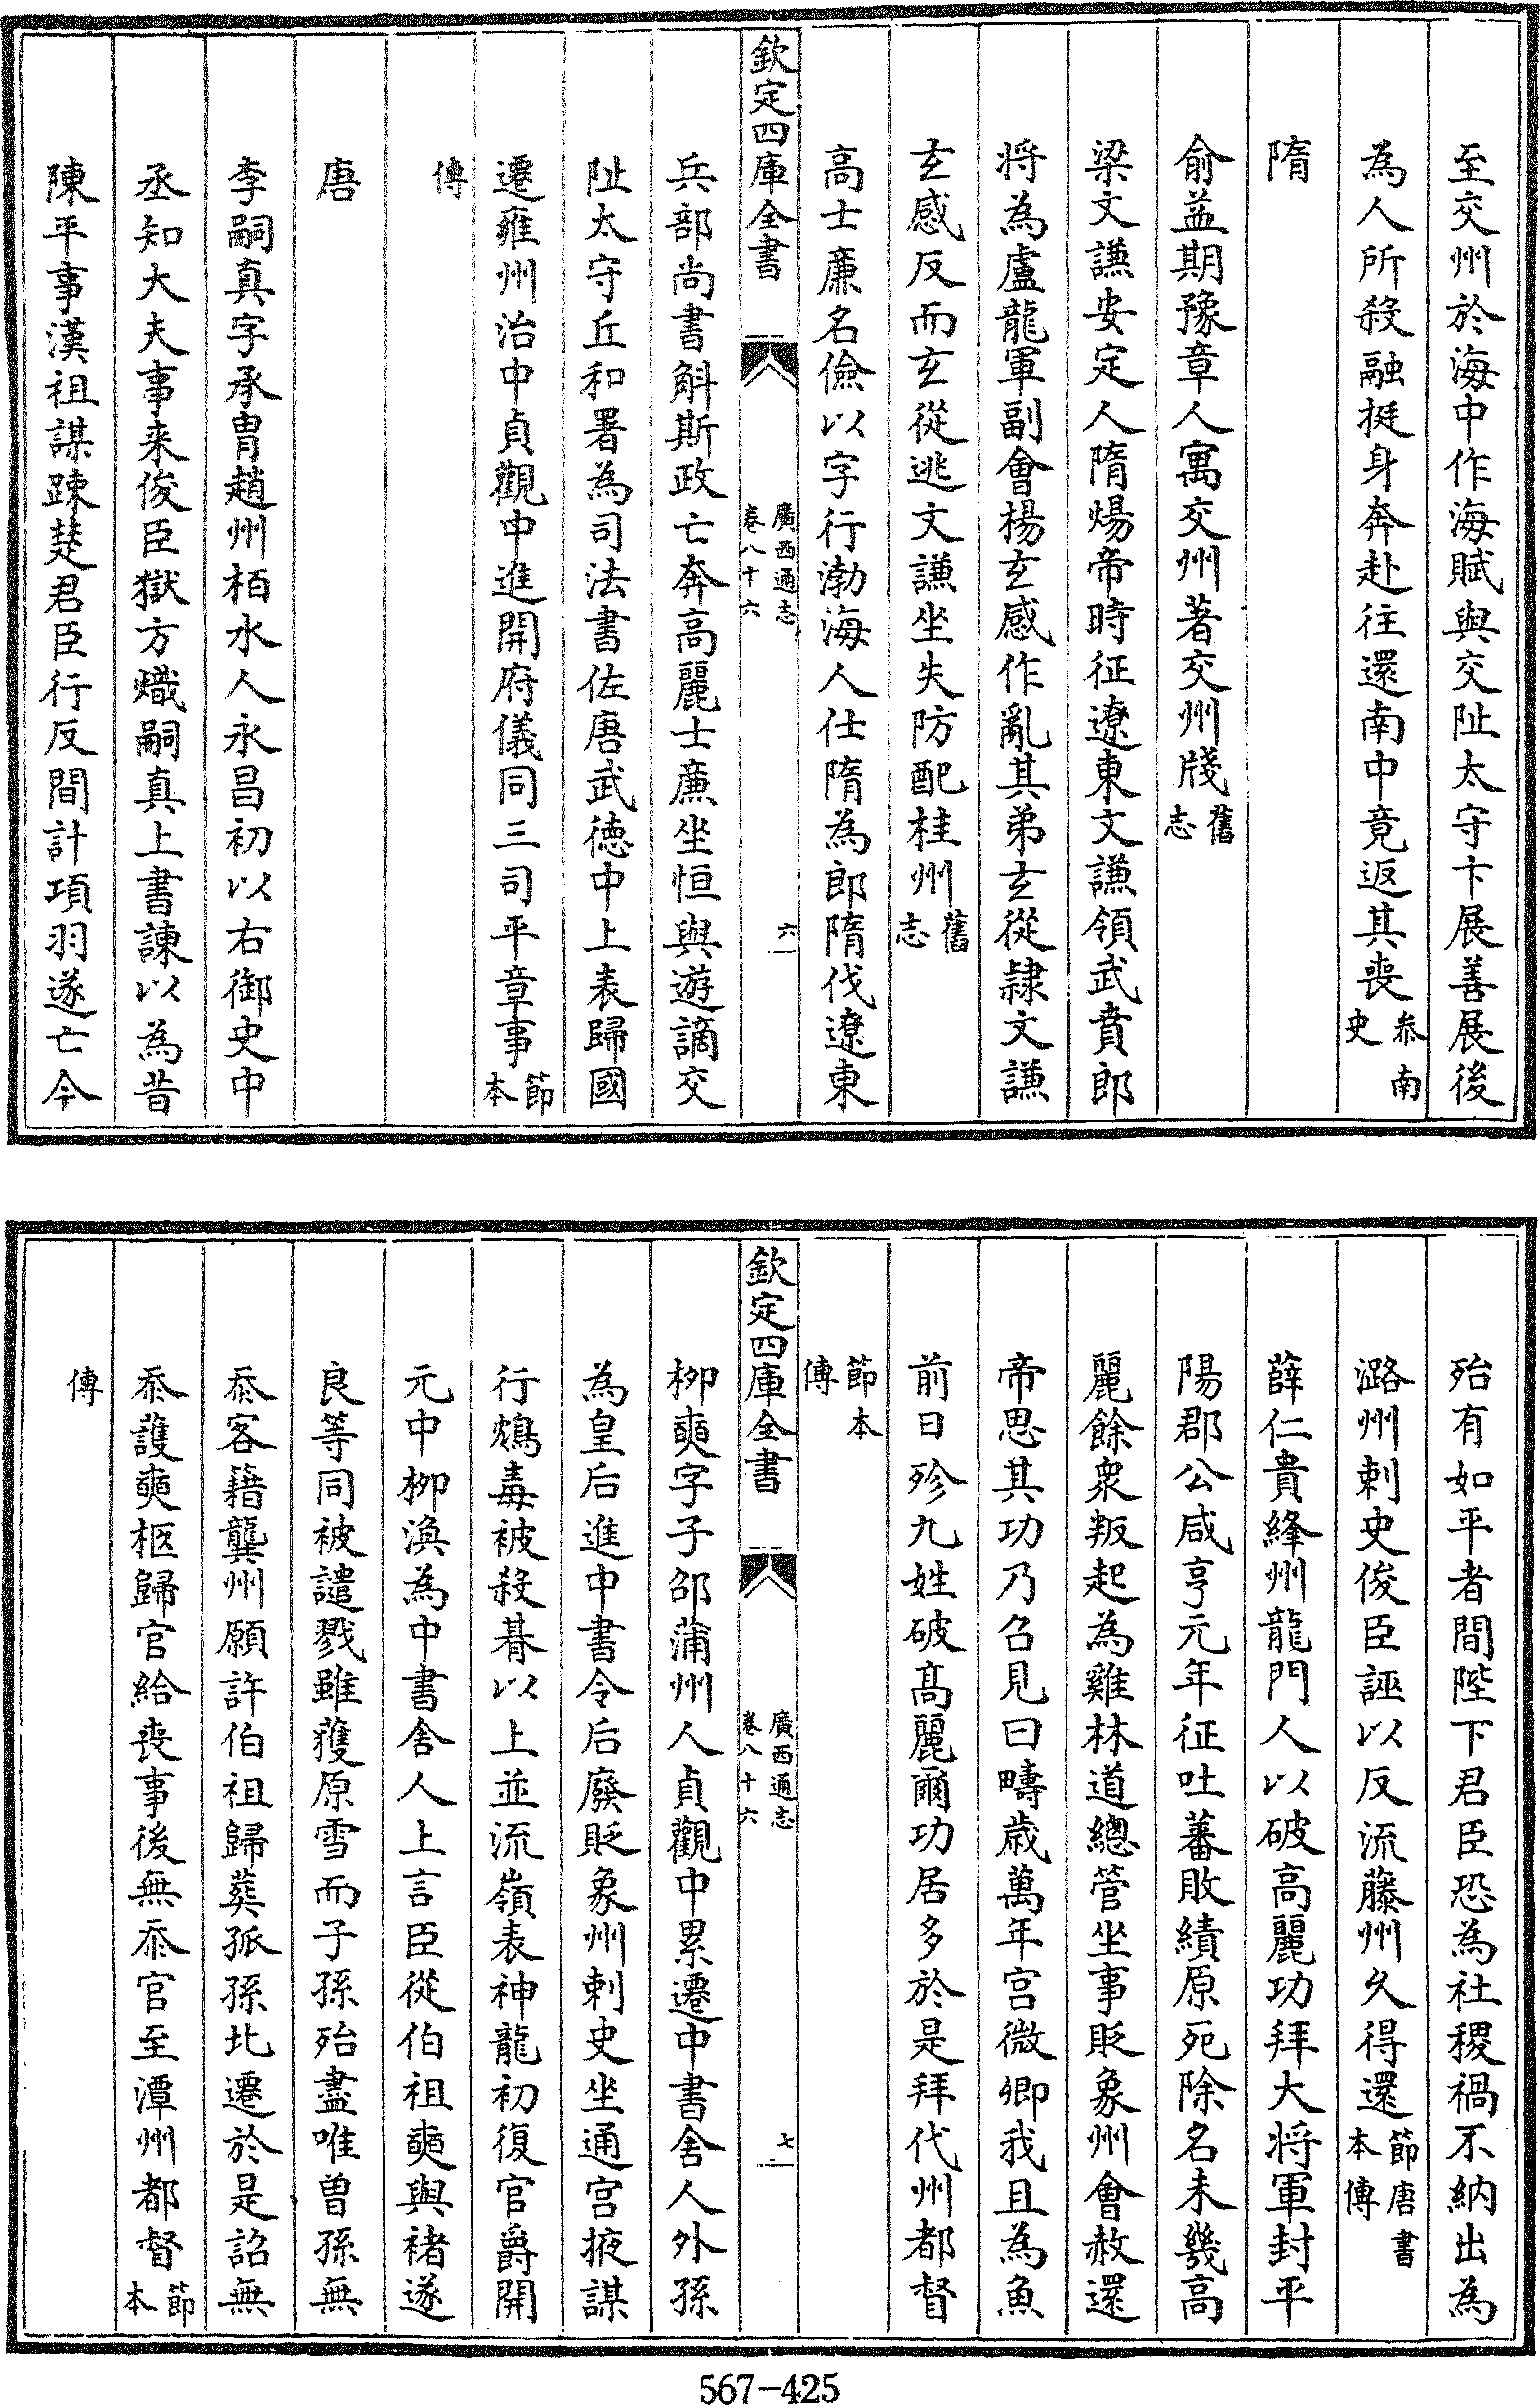 至交州於海中作海賦與交阯太守卞展善展後
為人所殺融挺身奔赴往還南中竟返其喪叅南史
隋
俞益期豫章人寓交州著交州牋舊志
梁文謙安定人隋煬帝時征遼東文謙領武賁郎
將為盧龍軍副會楊玄感作亂其弟玄從隷文謙
玄感反而玄從逃文謙坐失防配桂州舊志
高士亷名儉以字行渤海人仕隋為郎隋伐遼東
欽定四庫全書
廣西通志
卷八十六
六
兵部尚書斛斯政亡奔高麗士亷坐恒與遊謫交
阯太守丘和署為司法書佐唐武徳中上表歸國
遷雍州治中貞觀中進開府儀同三司平章事節本
傳
唐
李嗣真字承胄趙州栢水人永昌初以右御史中
丞知大夫事来俊臣獄方熾嗣真上書諫以為昔
陳平事漢祖謀踈楚君臣行反間計項羽遂亡今
殆有如平者間陛下君臣恐為社稷禍不納出為
潞州刺史俊臣誣以反流藤州久得還節唐書本傳
薛仁貴絳州龍門人以破高麗功拜大將軍封平
陽郡公咸亨元年征吐蕃敗績原死除名未幾高
麗餘衆叛起為雞林道總管坐事貶象州會赦還
帝思其功乃召見曰疇歲萬年宫微卿我且為魚
前日殄九姓破髙麗爾功居多於是拜代州都督
節本傳
欽定四庫全書
廣西通志
卷八十六
七
柳奭字子邵蒲州人貞觀中累遷中書舍人外孫
為皇后進中書令后廢貶象州刺史坐通宫掖謀
行鴆毒被殺朞以上並流嶺表神龍初復官爵開
元中柳渙為中書舍人上言臣從伯祖奭與禇遂
良等同被譴戮雖獲原雪而子孫殆盡唯曽孫無
忝客籍龔州願許伯祖歸葬孤孫北遷於是詔無
忝護奭柩歸官給喪事後無忝官至潭州都督節本
傳
567-425